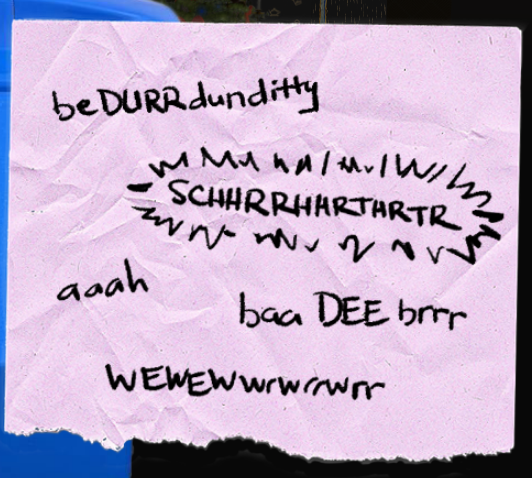 beDURRdunditty
SCHHRRHHRTHRTR
aaah
baa DEE brrr
WEWEWwrwrrwrr